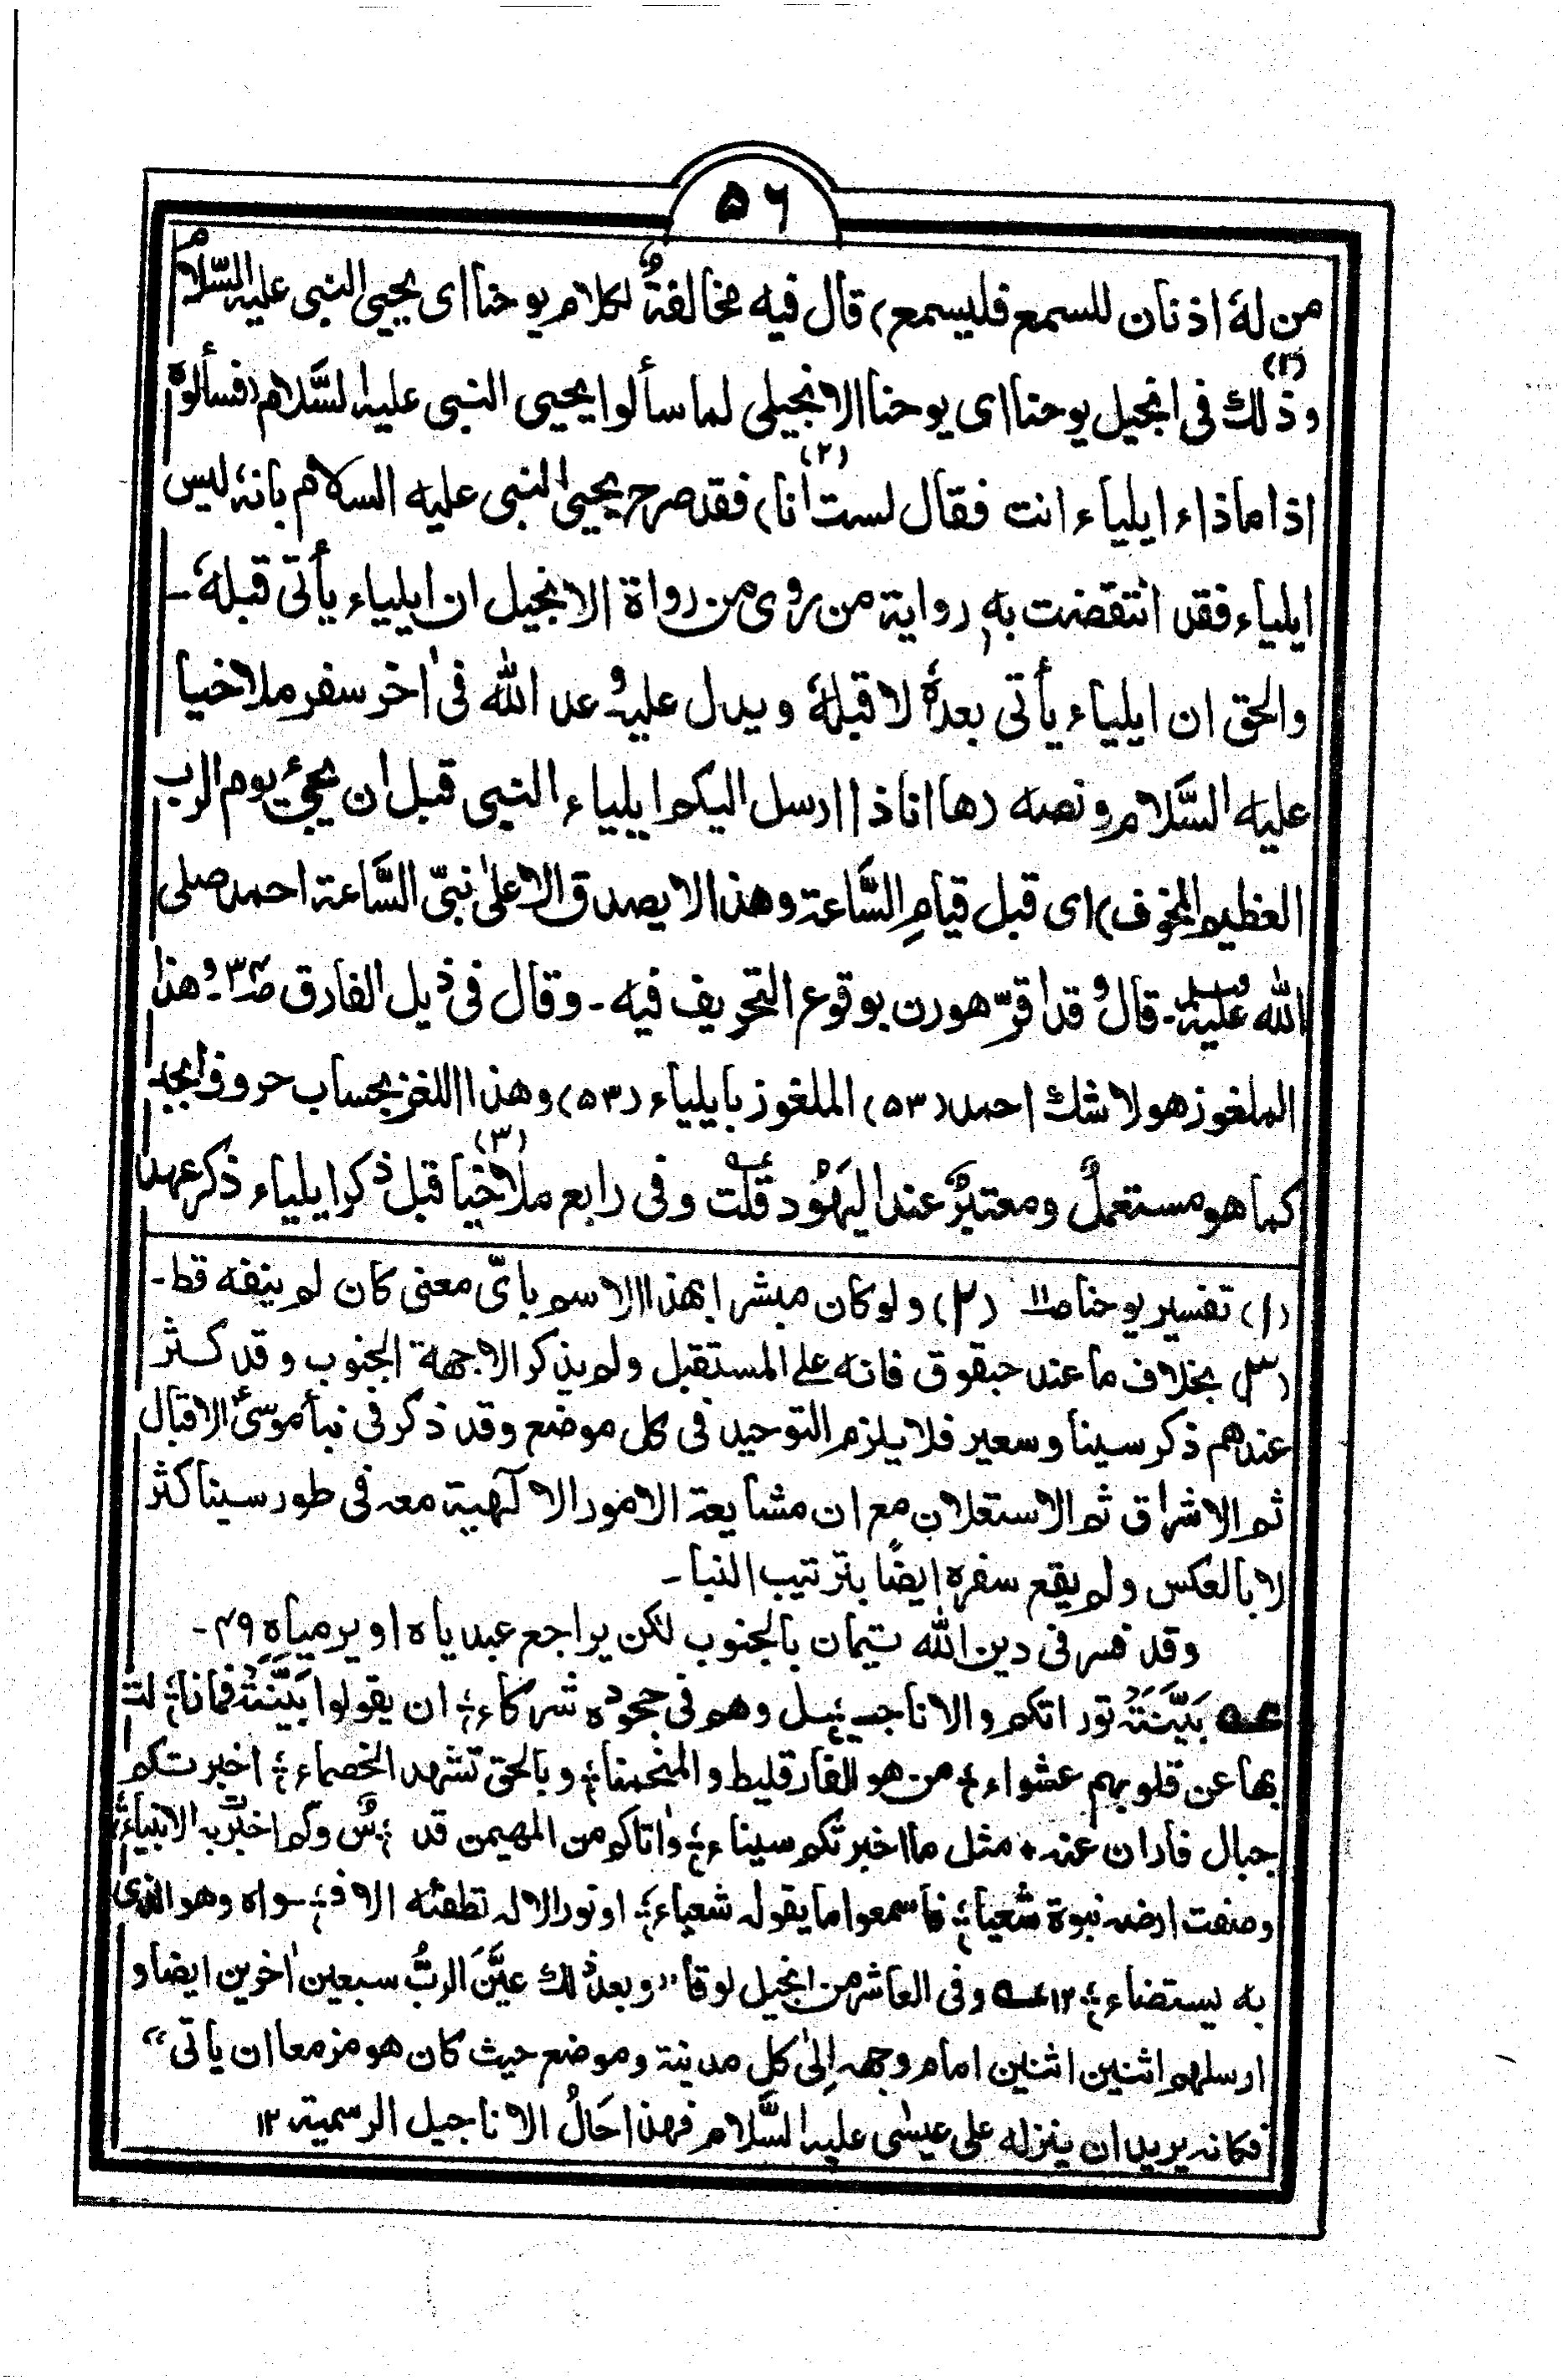 ۵۶
من لهٗ اذنان للسمع فليسمع) قال فيه مخالفةٌ لكلام يوحنا اى يحيى النبى عليه السّلام
وذٰلك فى انجيل يوحنا (۱) اى يوحنا الانجيلى لما سألوا يحيى النبى عليه السَّلام (فسألوه
اذا ماذاء ايلياء انت فقال لست انا) (۲) فقد صرح يحيى النبى عليه السلام بانهٗ ليس
ايلياء فقد انتقضت به رواية من روى من رواة الانجيل ان ايلياء يأتى قبلهٗ ـ
والحق ان ايلياء يأتى بعدهٗ لا قبلهٗ ويدل عليه وعد الله فى اٰخر سفر ملاخيا
عليه السَّلام ونصه (ها انا ذا ارسل اليكم ايلياء النبى قبل ان يجئ يوم الرب
العظيم المخوف) اى قبل قيامِ السَّاعة وهذا لا يصدق الا علىٰ نبىّ السَّاعة احمد صلى
الله عليه وسلم ـ قال وقد اقرّ هورن بوقوع التحريف فيه ـ وقال فى ذيل الفارق ص۳۴ ـ وهذا
الملغوز هو لا شك احمد (۵۳) الملغوز بايلياء (۵۳) وهذا اللغز بحساب حروف ابجد
كما هو مستعملٌ ومعتبرٌ عند اليَهُود قلت وفى رابع ملاخيا (۳) قبل ذكر ايلياء ذكر عهد
(۱) تفسير يوحنا ص۱۱ (۲) ولو كان مبشرا بهذا الاسم باىّ معنى كان لم ينفه قط ـ
(۳) بخلاف ما عند حبقوق فانه على المستقبل ولم يذكر الا جهة الجنوب وقد كثر
عندهم ذكر سينا وسعير فلا يلزم التوحيد فى كل موضع وقد ذكر فى نبأ موسىٰ الاقبال
ثم الاشراق ثم الاستعلان مع ان مشايعة الامور الالٰهية معه فى طور سينا كثر
لا بالعكس ولم يقع سفره ايضًا بترتيب النبا ـ
وقد فسر فى دين الله تيمان بالجنوب لكن يراجع عبدياه او يرمياه ۴۹ ـ
عـه بَيَّنَتْه توراتكم والاناجيـ ؛ ـل وهم فى جحوده شركاء ؛ ان يقولوا بَيَّنَتْه فما زا ؛ لت
بها عن قلوبهم عشواء ؛ من هو الفارقليط والمنحمنا ؛ وبالحق تشهد الخصماء ؛ اخبرتكم
جبال فاران عنه ؛ مثل ما اخبرتكم سيناء ؛ واتاكم من المهيمن قد ؛ سٌ وكم اخبرت به الانبياء ؛
وصفت ارضه نبوة شعيا ؛ فاسمعوا ما يقوله شعياء ؛ او نور الاله تطفئه الافـ ؛ ـواه وهو الذى
به يستضاء ؛ ۱۲ عـه وفى العاشر من انجيل لوقا "وبعد ذٰلك عيَّن الربُّ سبعين اٰخرين ايضا و
ارسلهم اثنين اثنين امام وجهه اِلىٰ كل مدينة وموضع حيث كان هو مزمعا ان ياتى"
فكانه يريد ان ينزله على عيسٰى عليه السَّلام فهذا حَالُ الاناجيل الرسمية ۱۲